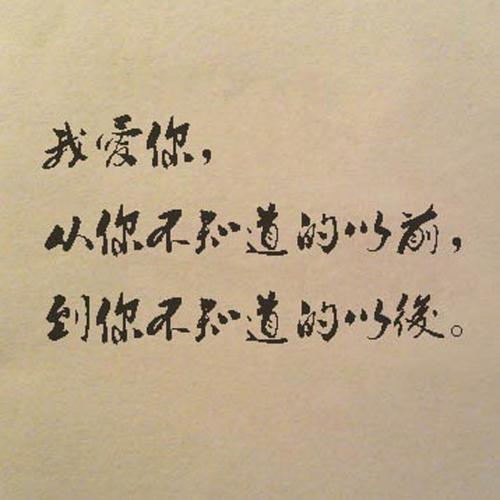 我爱你，
从你不知道的以前，
到你不知道的以後。